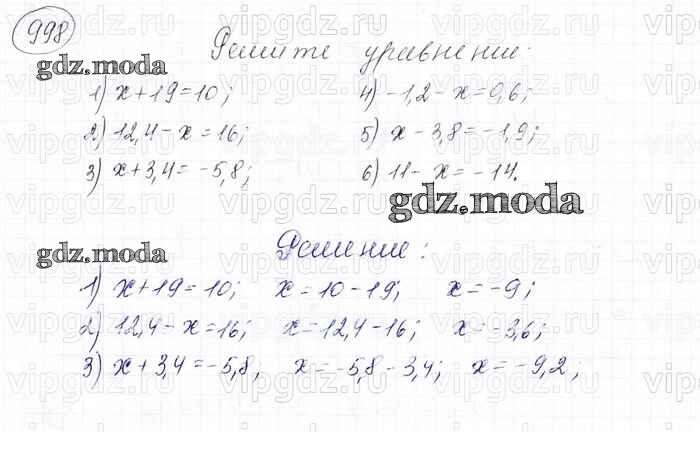 998
Решите уравнение:
gdz.moda
1) x+19=10; 4) -1,2-x=0,6;
2) 12,4-x=16; 5) x-3,8=-1,9;
3) x+3,4=-5,8; 6) 11-x=-14.
gdz.moda
gdz.moda
Решение:
1) x+19=10; x=10-19; x=-9;
2) 12,4-x=16; x=12,4-16; x=-3,6;
3) x+3,4=-5,8; x=-5,8-3,4; x=-9,2;